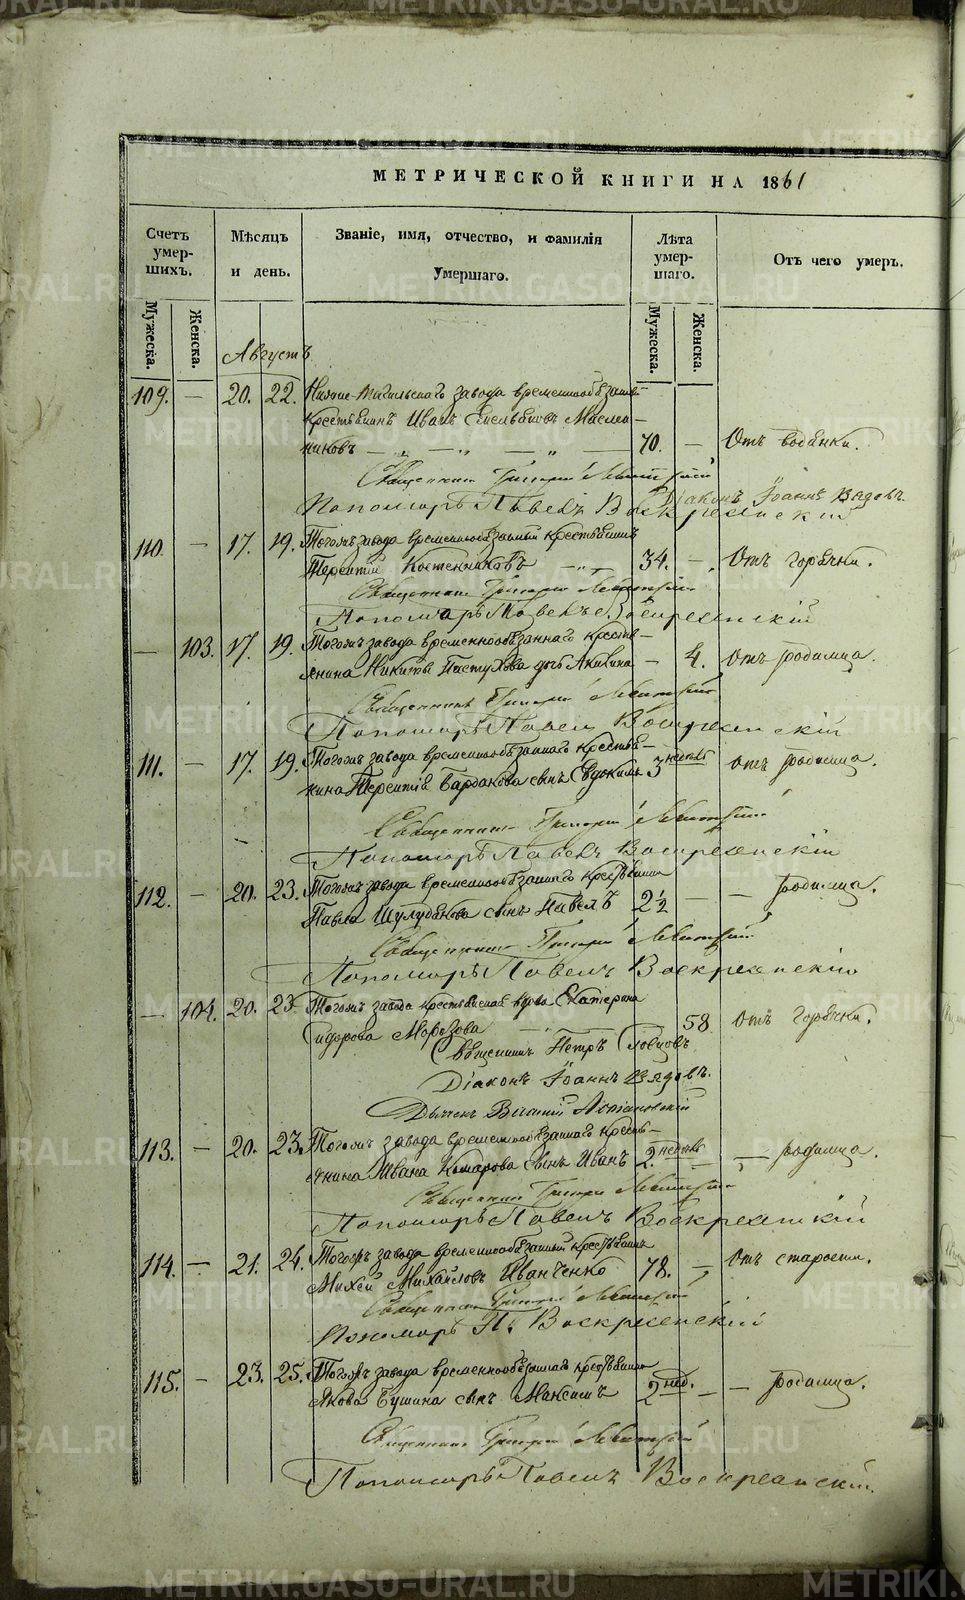 METRIKI.GASO-URAL.RU
МЕТРИЧЕСКОЙ КНИГИ НА 1861
Счетъ умер-шихъ.
Мѣсяцъ и день.
Званіе, имя, отчество, и фамилія Умершаго.
Лѣта умер-шаго.
Отъ чего умеръ.
Мужеска. Женска.
Мужеска. Женска.
Августъ
109. — 20. 22. Нижне-Тагильскаго завода временнообязан-
крестьянинъ Иванъ Емельяновъ Маслен-
никовъ 70. — Отъ водянки.
Священникъ Григорій Левитскій
Діаконъ Іоаннъ Вядовъ
Пономарь Павелъ Воскресенскій
110. — 17. 19. Тогожъ завода временнообязанный крестьянинъ
Терентій Костенниковъ 34. — Отъ горячки.
Священникъ Григорій Левитскій
Пономарь Павелъ Воскресенскій
— 103. 17. 19. Тогожъ завода временнообязаннаго кресть-
янина Никиты Пастухова дочь Акилина — 4. Отъ родимца.
Священникъ Григорій Левитскій
Пономарь Павелъ Воскресенскій
111. — 17. 19. Тогожъ завода временнообязаннаго крестья-
нина Терентія Бардакова сынъ Евдокимъ 3 недѣль Отъ родимца.
Священникъ Григорій Левитскій
Пономарь Павелъ Воскресенскій
112. — 20. 23. Тогожъ завода временнообязаннаго крестьянина
Павла сынъ Павелъ 2½ — — родимца.
Священникъ Григорій Левитскій
Пономарь Павелъ Воскресенскій
— 104. 20. 23. Тогожъ завода крестьянская вдова Екатерина
Сидорова Морозова — 58. Отъ горячки.
Священникъ Петръ Словцовъ
Діаконъ Іоаннъ Вядовъ.
Дьячекъ
113. — 20. 23. Тогожъ завода временнообязаннаго кресть-
янина Ивана Комарова сынъ Иванъ 2. недѣль — — родимца.
Священникъ Григорій Левитскій
Пономарь Павелъ Воскресенскій
114. — 21. 24. Тогожъ завода временнообязанный крестьянинъ
Михей Михайловъ Иванченко 78. — Отъ старости.
Священникъ Григорій Левитскій
Пономарь П. Воскресенскій
115. — 23. 25. Тогожъ завода временнообязаннаго крестьянина
Якова Бушина сынъ Максимъ 2 нед. — — родимца.
Священникъ Григорій Левитскій
Пономарь Павелъ Воскресенскій.